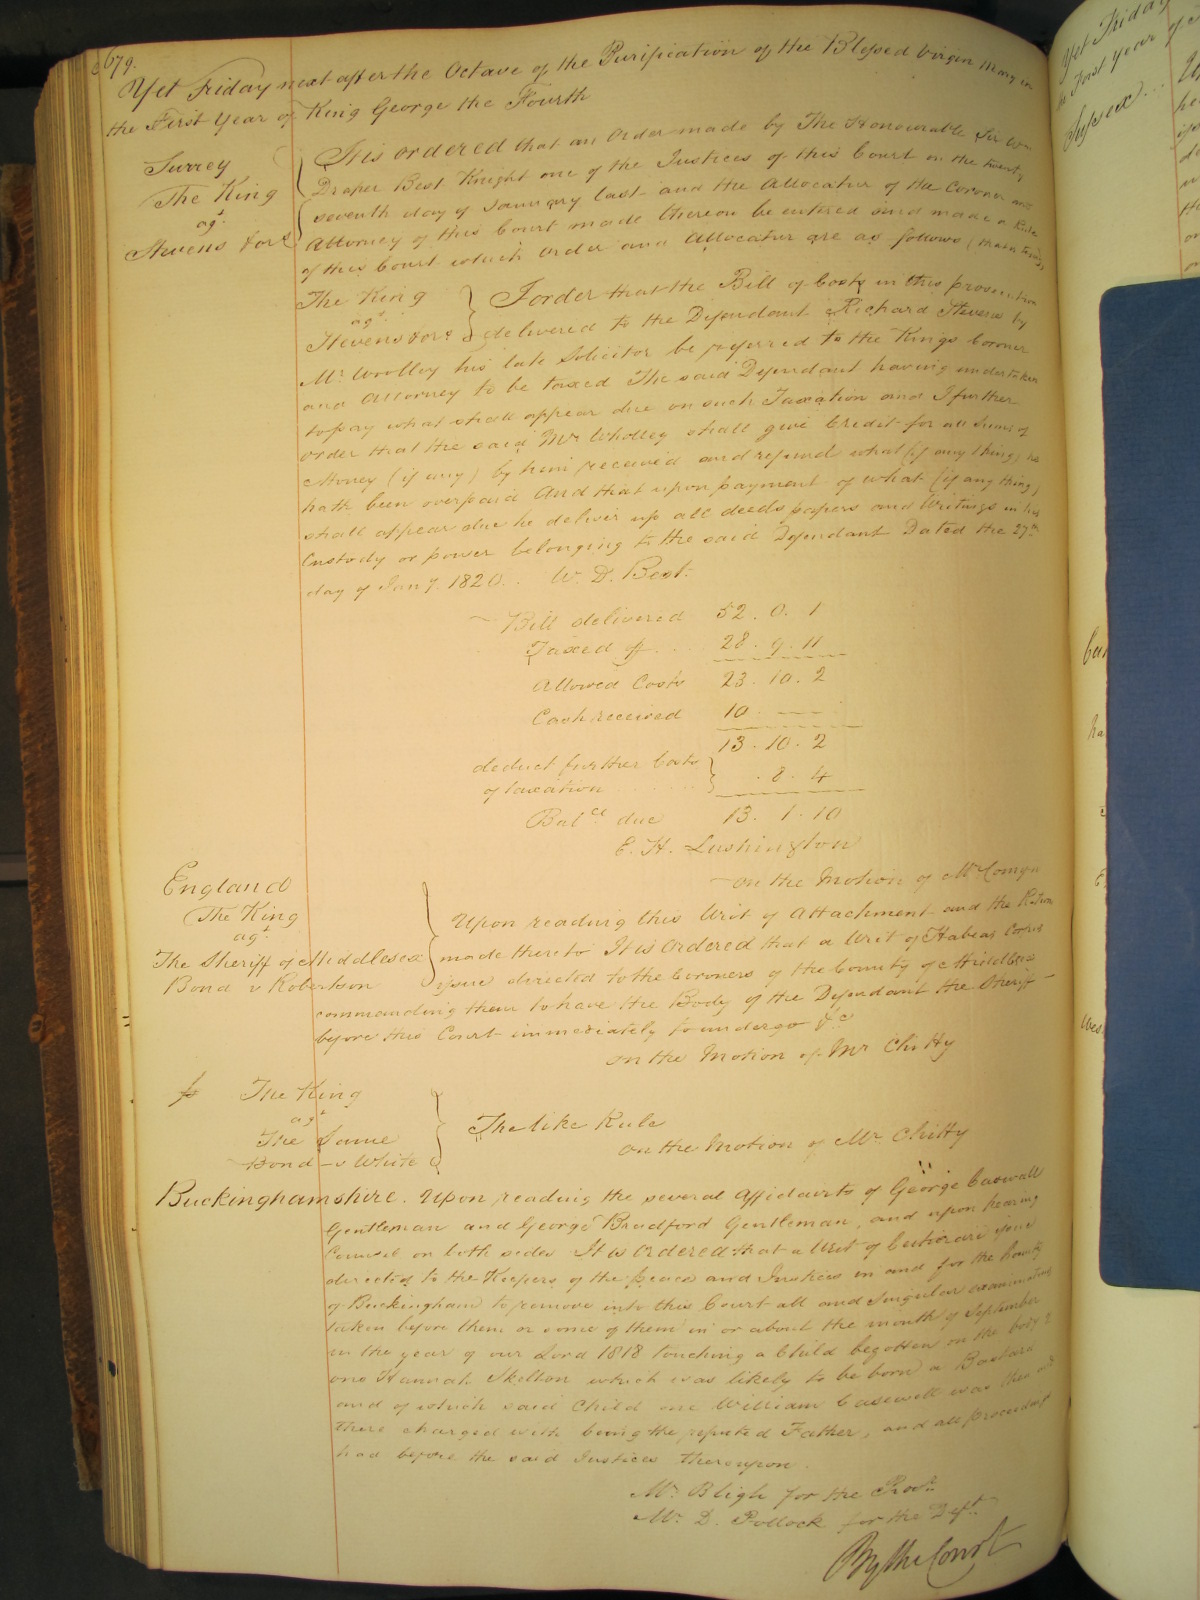 679.
Yet Friday next after the Octave of the Purification of the Blessed Virgin Mary in
the First Year of King George the Fourth
Surrey
The King
agt.
Stevens Forr
It is ordered that an Order made by The Honourable Sir Wm
Draper Best Knight one of the Justices of this Court on the twenty
seventh day of January last and the Allocatur of the Coroner and
Attorney of this Court made thereon be entered and made a Rule
of this Court which Order and Allocatur are as follows
The King
agt.
Stevens Forr
I order that the Bill of Costs in this prosecution
delivered to the Defendant Richard Stevens by
Mr. Woolley his late Solicitor be referred to the Kings Coroner
and Attorney to be taxed The said Defendant having undertaken
to pay what shall appear due on such Taxation and I further
order that the said Mr Wholley shall give Credit for all Sums of
Money (if any) by him received and refund what (if any thing) he
hath been overpaid And that upon payment of what (if any thing)
shall appear due he deliver up all deeds papers and Writings in his
Custody or power belonging to the said Defendant Dated the 27th
day of Jany. 1820. W. D. Best.
Bill delivered 52. 0. 1
Taxed off .... 28. 9. 11
Allowed Costs 23. 10. 2
Cash received 10. — —
13. 10. 2
deduct further Costs
of taxation ...... . 8. 4
Balce. due 13. 1. 10
E. H. Lushington
on the Motion of Mr Comyn
England
The King
agt.
The Sheriff of Middlesex
Bond v Robertson
Upon reading this Writ of Attachment and the Return
made thereto It is Ordered that a Writ of Habeas Corpus
issue directed to the Coroners of the County of Middlesex
commanding them to have the Body of the Defendant the Sheriff
before this Court immediately to undergo &c
on the Motion of Mr Chitty
The King
agt
The Same
Bond v White
The like Rule
on the Motion of Mr. Chitty
Buckinghamshire. Upon reading the several Affidavits of George Caswall
Gentleman and George Bradford Gentleman, and upon hearing
Counsel on both sides It is Ordered that a Writ of Certiorari issue
directed to the Keepers of the peace and Justices in and for the County
of Buckingham to remove into this Court all and singular examinations
taken before them or some of them in or about the month of September
in the year of our Lord 1818 touching a Child begotten on the body of
one Hannah Skelton which was likely to be born a Bastard
and of which said Child one William Casewell was then and
there charged with being the reputed Father, and all proceedings
had before the said Justices thereupon.
Mr. Bligh for the Prosr.
Mr. D. Pollock for the Deft.
By the Court